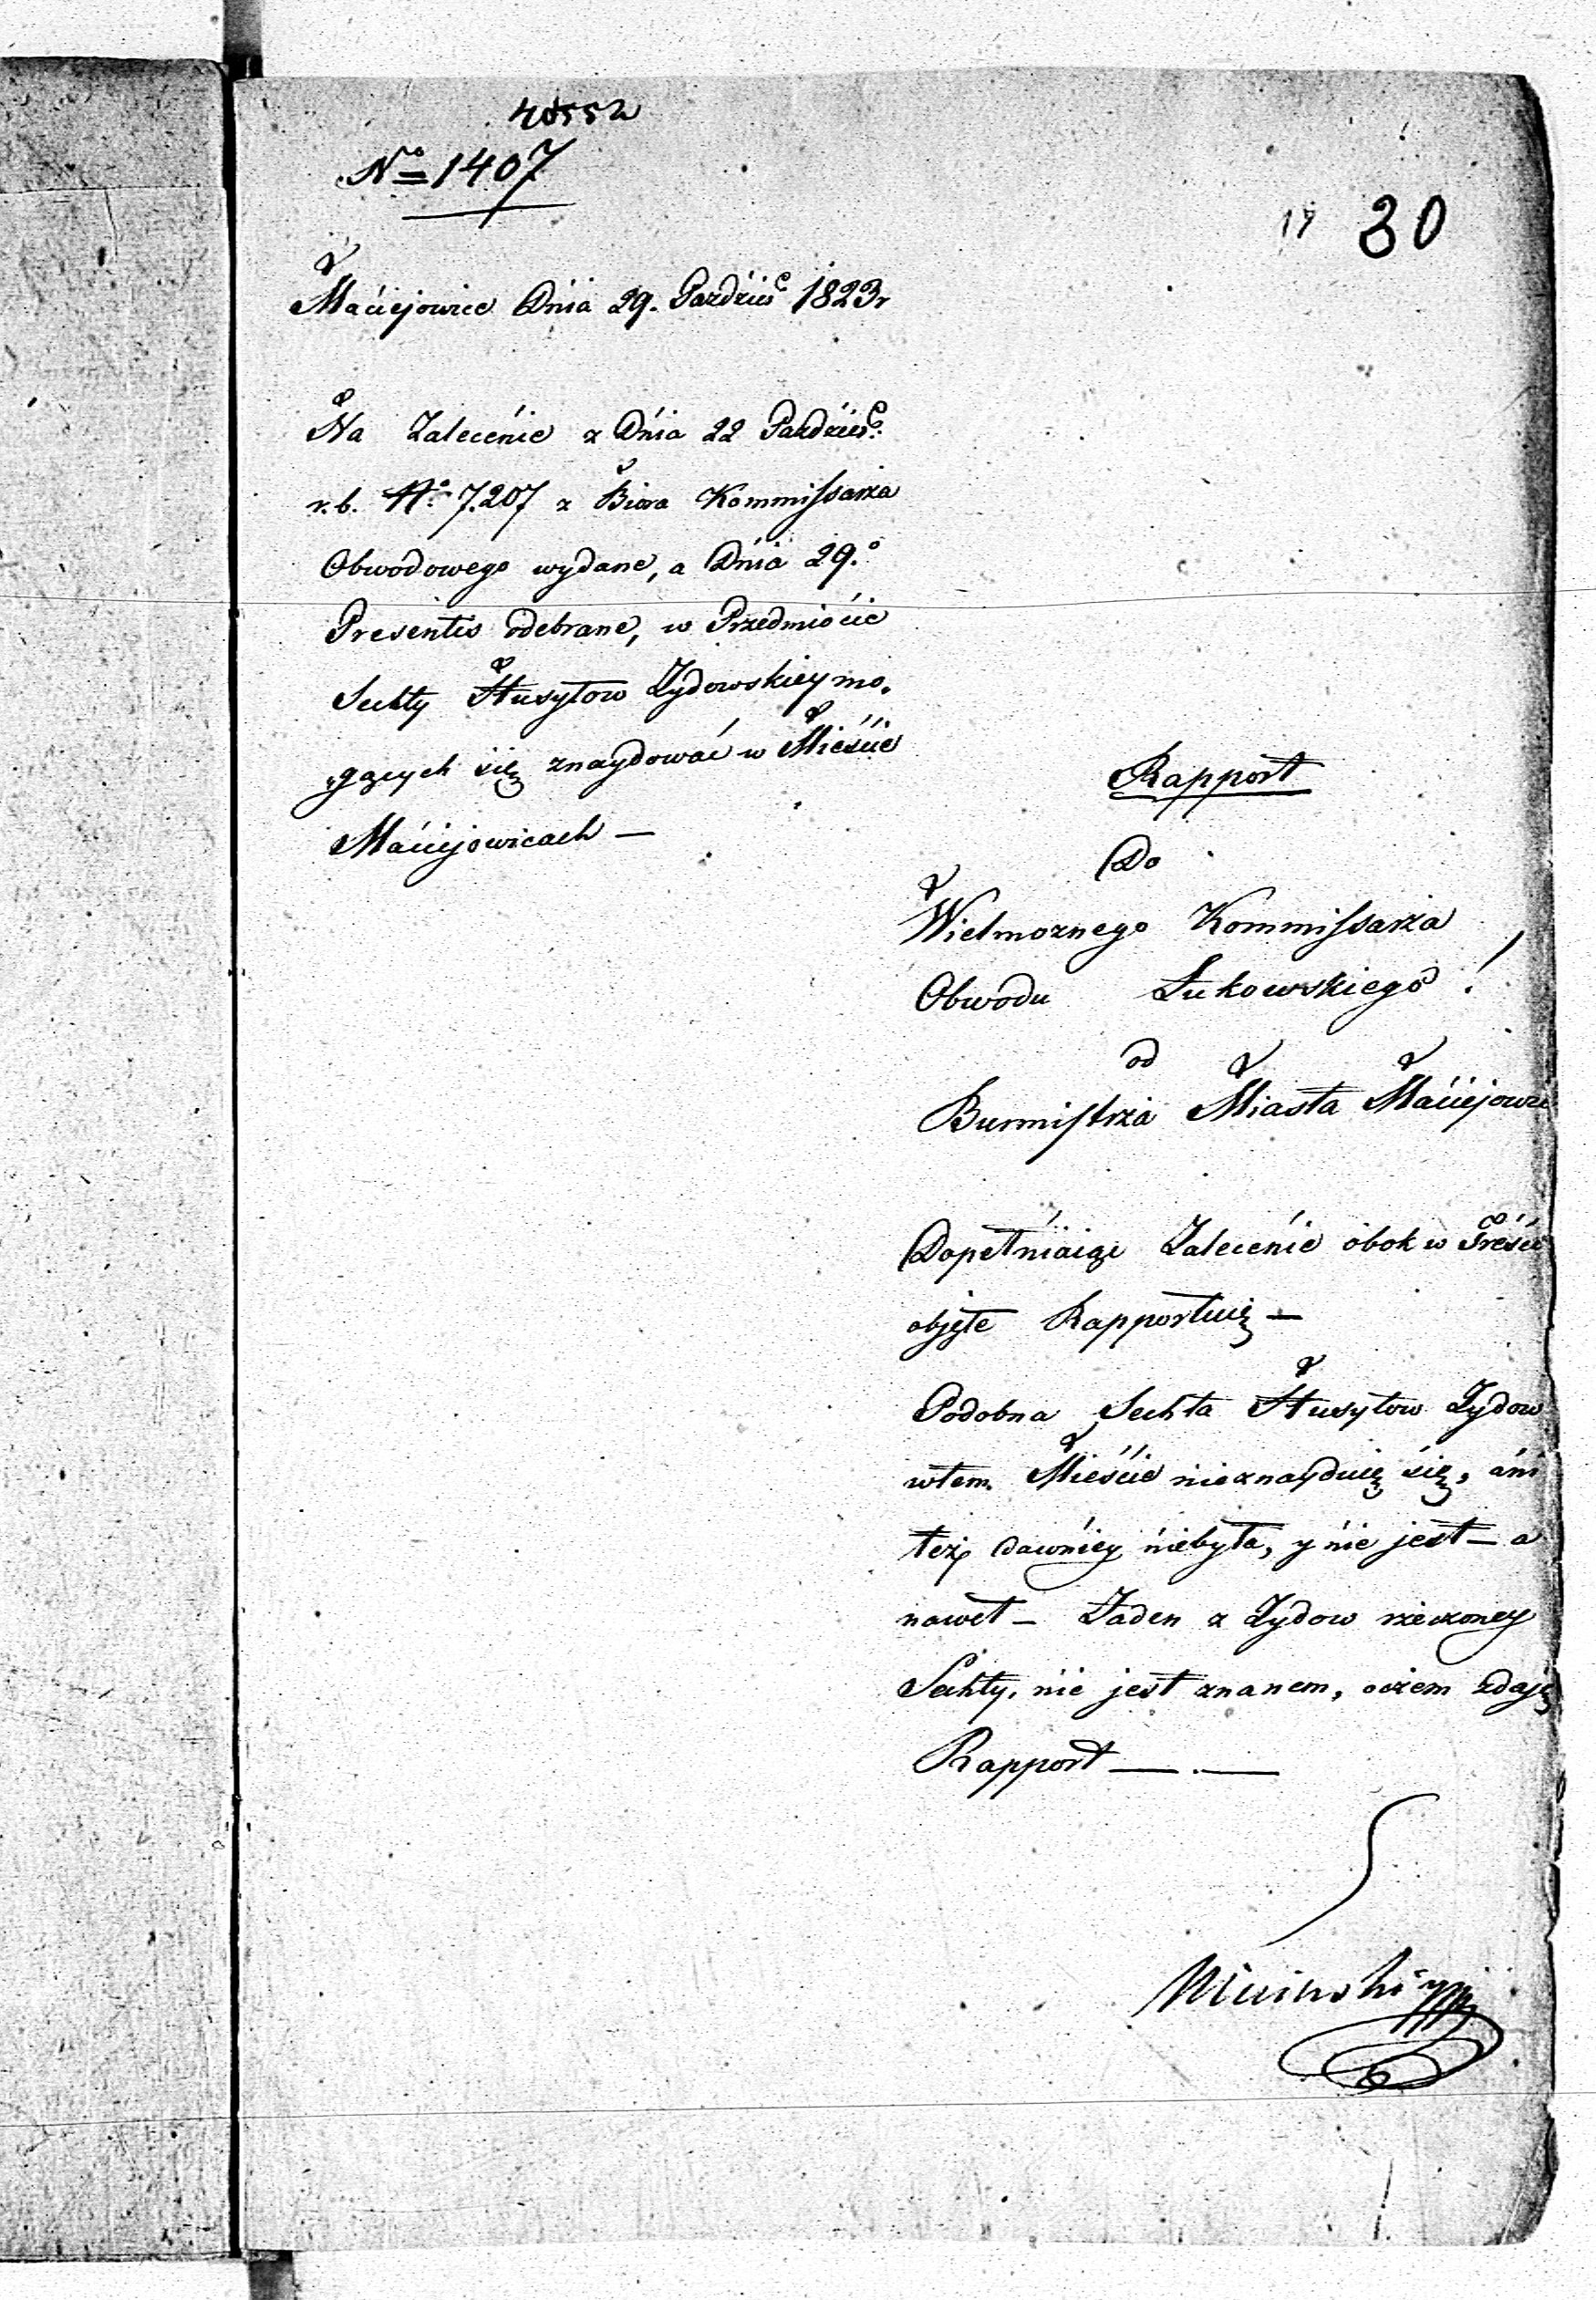 40552
No 1407
19 30
Maciejowice Dnia 29. Pazdzier 1823r
Na Zalecenie z Dnia 22 Pazdzier.
r. b. No 7.207 z Biora Kommissarza
Obwodowego wydane, a Dnia 29.o
Presentis odebrane, w Przedmiocie
Sekty Husytow Zydowskiey mo,
,gących się znaydować w Mieście
Maciejowicach —
Rapport
Do
Wielmoznego Kommissarza
Obwodu Łukowskiego !
od
Burmistrza Miasta Maciejowic
Dopełniaiąc Zalecenie obok w Treści
objęte Rapportuię —
Podobna Sekta Husytow Zydow
wtem Mieście nieznayduię się, áni
też dawniey niebyła, y nie jest — a
nawet — Zaden z Zydow rzeczoney
Sekty, nie jest znanem, oczem zdaję
Rapport — . —